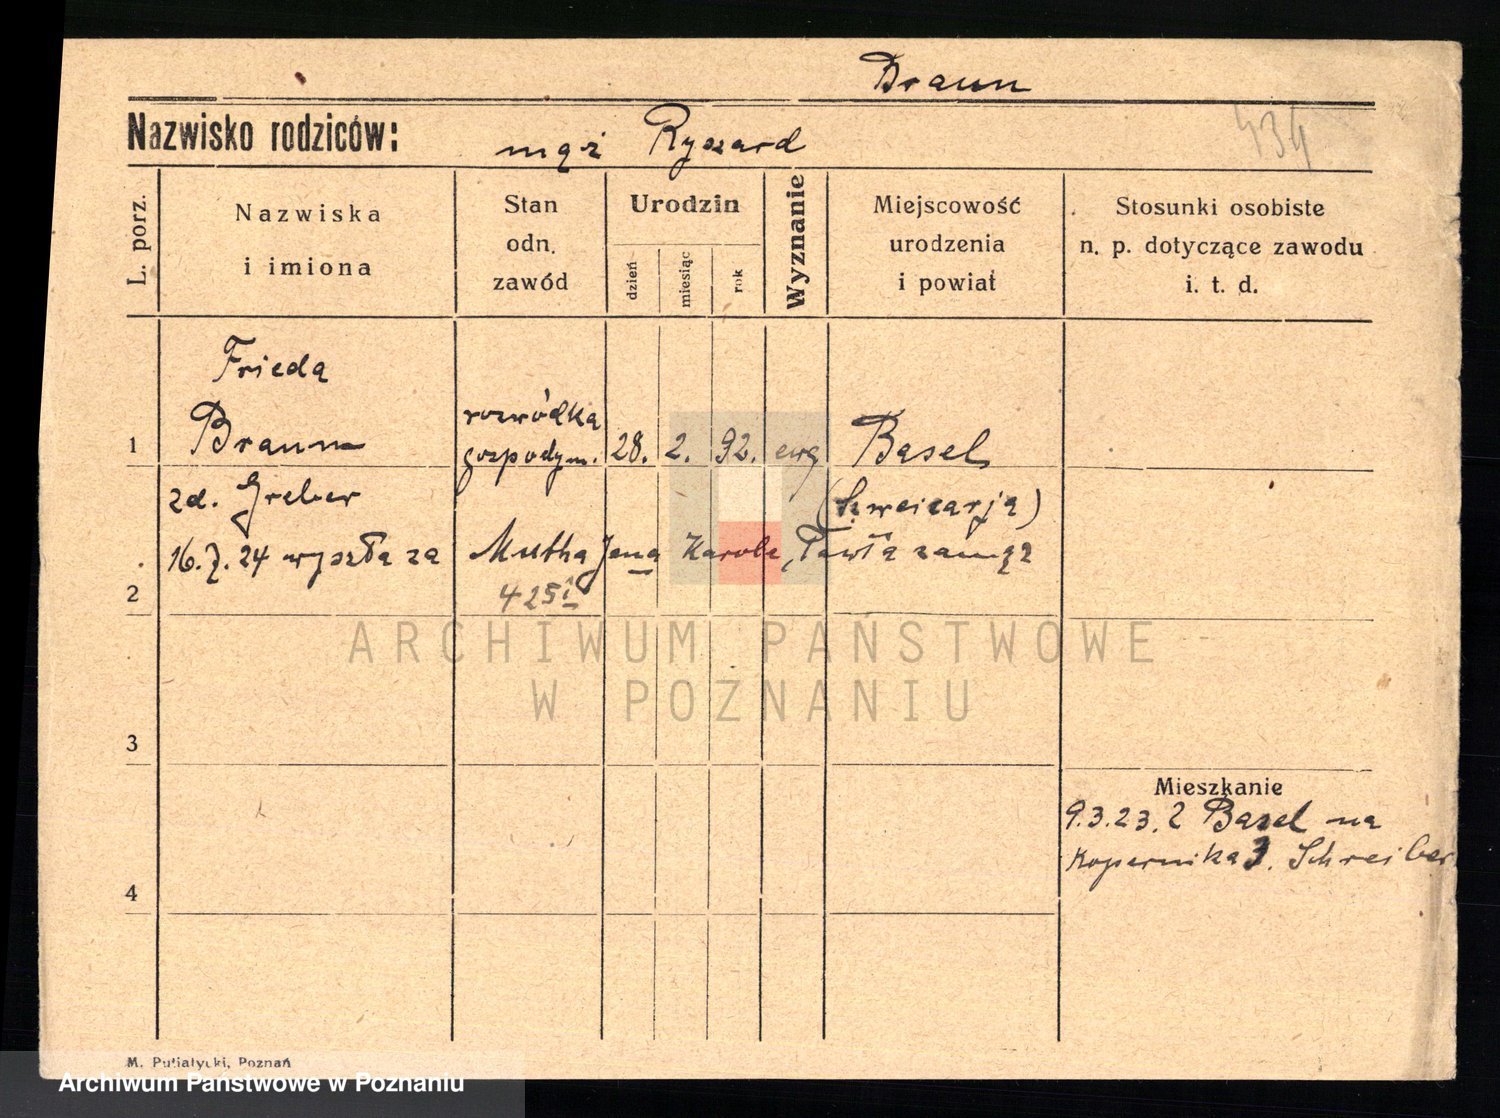 Braun
434
Nazwisko rodziców:
mąż Ryszard
L. porz.
Nazwiska
i imiona
Stan
odn.
zawód
Urodzin
dzień
miesiąc
rok
Wyznanie
Miejscowość
urodzenia
i powiat
Stosunki osobiste
n. p. dotyczące zawodu
i. t. d.
Frieda
1 Braun rozwódka gospodyn. 28. 2. 92. ewg Basel
zd. Greber (Szweicarja)
16.7.24 wyszła za Mutha Jena Karola, Pawła zamąż
2
425
ARCHIWUM PAŃSTWOWE
W POZNANIU
3
Mieszkanie
9.3.23. z Basel na
4 Kopernika 3. Schreiber
M. Putiatycki, Poznań
Archiwum Państwowe w Poznaniu